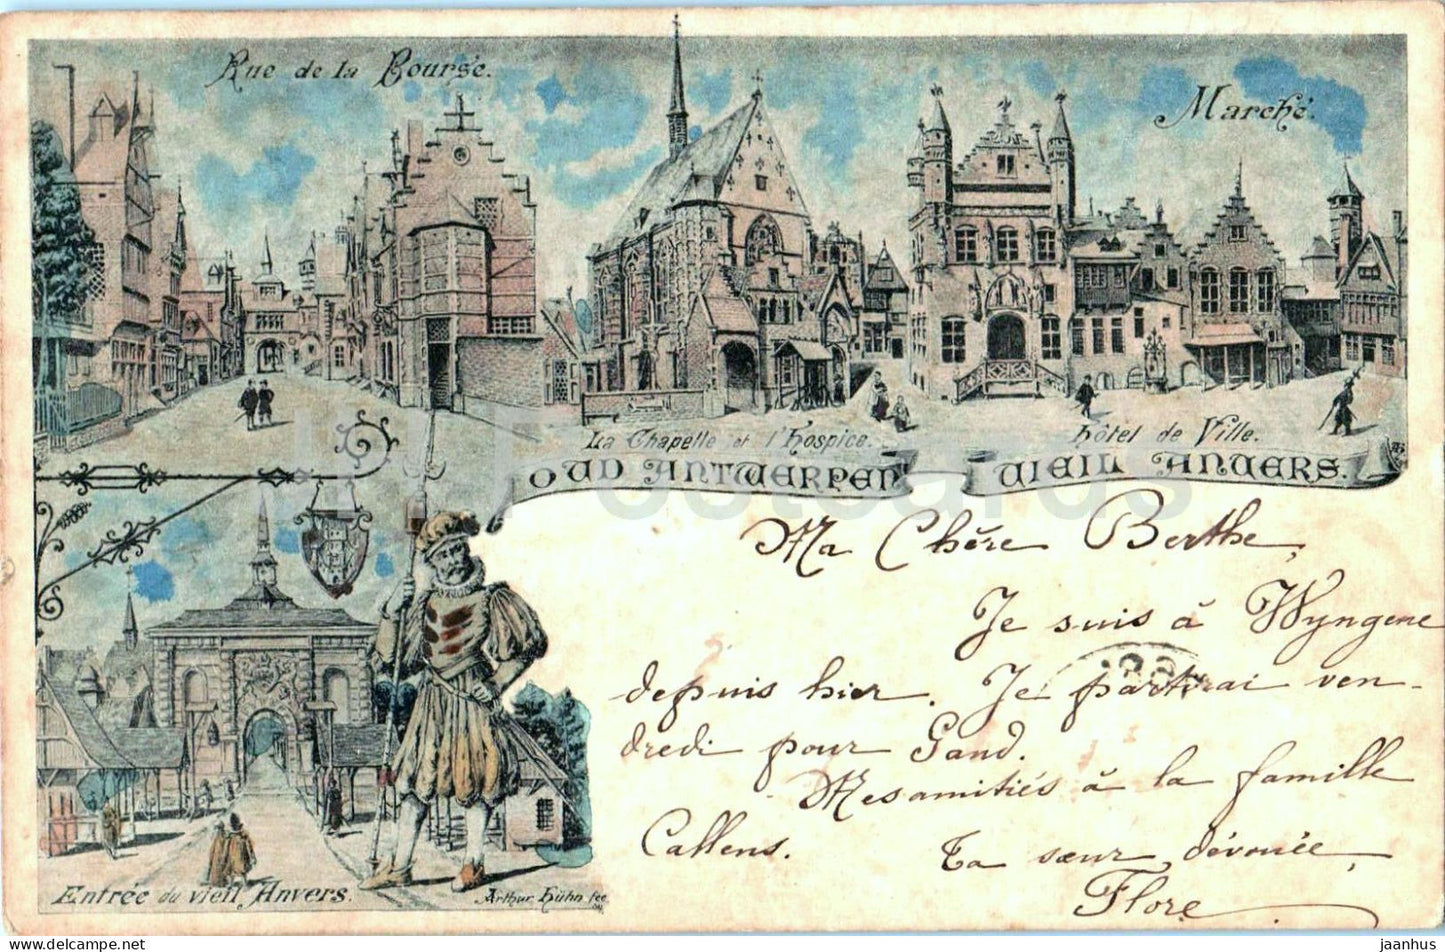 Rue de la Bourse.
Marché.
La Chapelle et l'hospice.
hôtel de Ville.
OUD ANTWERPEN VIEIL ANVERS.
Ma Chère Berthe,
Je suis à Wyngene
depuis hier. Je partirai ven-
dredi pour Gand.
Mes amitiés à la famille
Callens.
Ta sœur dévouée,
Flore
Entrée du vieil Anvers.
Arthur Hühn fec
Postcards
jaanhus
www.delcampe.net